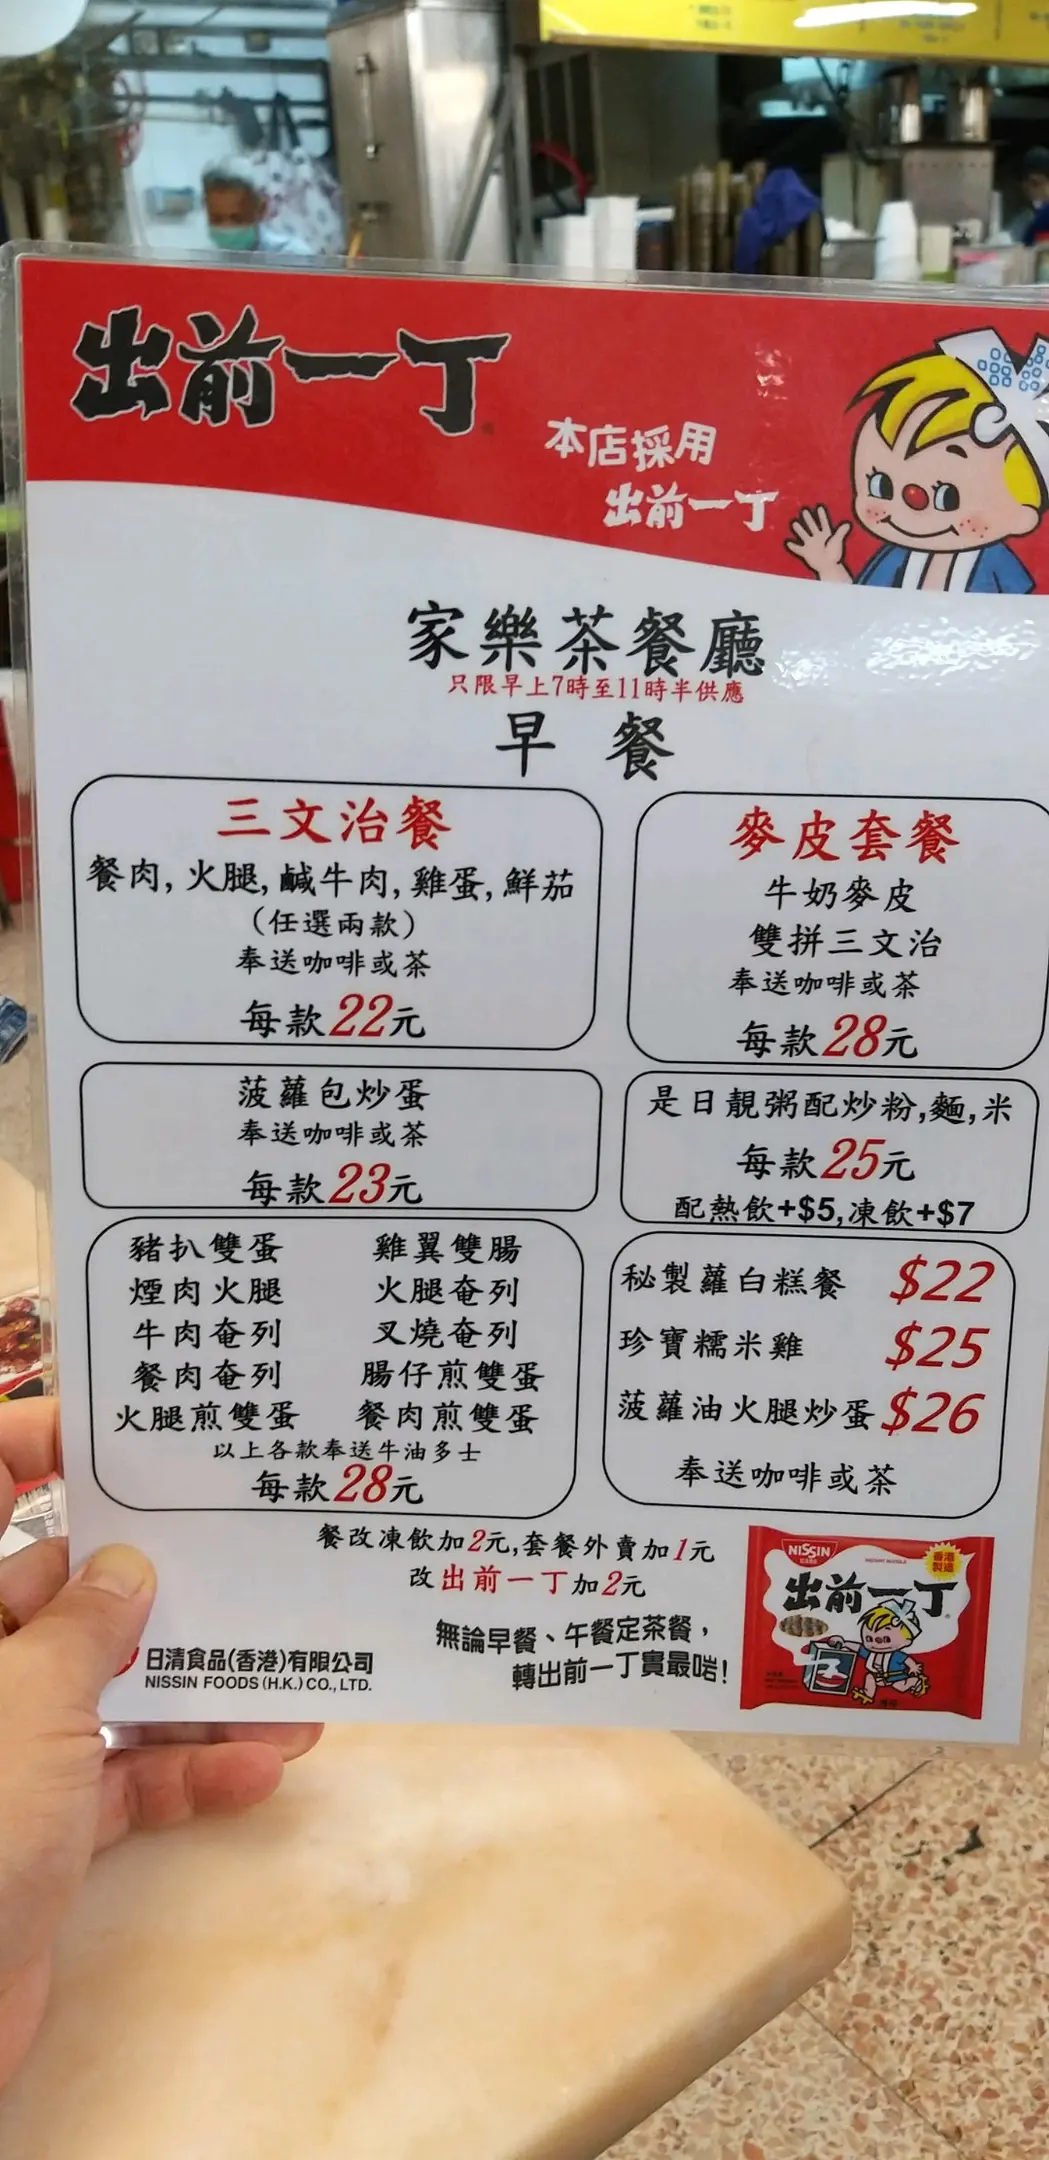 出前一丁
本店採用
出前一丁
家樂茶餐廳
只限早上7時至11時半供應
早 餐
三文治餐
餐肉, 火腿, 鹹牛肉, 雞蛋, 鮮茄
(任選兩款)
奉送咖啡或茶
每款22元
麥皮套餐
牛奶麥皮
雙拼三文治
奉送咖啡或茶
每款28元
菠蘿包炒蛋
奉送咖啡或茶
每款23元
是日靚粥配炒粉,麵,米
每款25元
配熱飲+$5,凍飲+$7
豬扒雙蛋 雞翼雙腸
煙肉火腿 火腿奄列
牛肉奄列 叉燒奄列
餐肉奄列 腸仔煎雙蛋
火腿煎雙蛋 餐肉煎雙蛋
以上各款奉送牛油多士
每款28元
秘製蘿白糕餐 $22
珍寶糯米雞 $25
菠蘿油火腿炒蛋 $26
奉送咖啡或茶
餐改凍飲加2元,套餐外賣加1元
改出前一丁加2元
無論早餐、午餐定茶餐，
轉出前一丁實最啱!
日清食品(香港)有限公司
NISSIN FOODS (H.K.) CO., LTD.
NISSIN
香港
製造
出前一丁